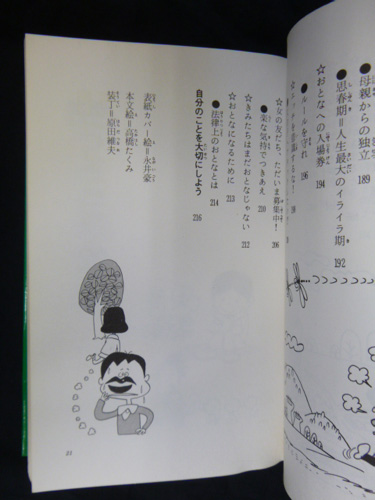 ●母親からの独立 189
●思春期=人生最大のイライラ期 192
☆おとなへの入場券 194
●ルールを守れ 196
☆女の友だち、ただいま募集中! 206
●楽な気持でつきあえ 210
☆きみたちはまだおとなじゃない 212
☆おとなになるために 213
●法律上のおとなとは 214
自分のことを大切にしよう 216
表紙カバー絵=永井豪
本文絵=高橋たくみ
装丁=原田維夫
21